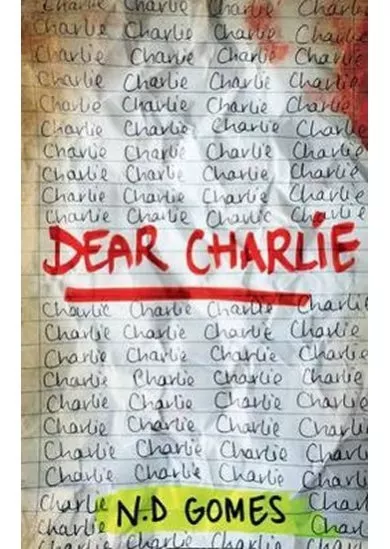 Charlie Charlie Charlie Charlie
Charlie Charlie Charlie Charlie
Charlie Charlie Charlie Charlie
Charlie Charlie Charlie Charlie
Charlie Charlie Charlie Charlie
Charlie Charlie Charlie Charlie
Charlie Charlie Charlie Charlie
Charlie Charlie Charlie Charlie
Charlie Charlie Charlie Charlie
Charlie Charlie Charlie Charlie
DEAR CHARLIE
Charlie Charlie Charlie Charli
Charlie Charlie Charlie Charli
Charlie Charlie Charlie Charli
Charlie Charlie Charlie Charlie
Charlie Charlie Charlie Charli
Charlie Charlie Charlie Charli
Charlie Charlie Charlie Charl
Charlie Charlie Charlie Charl
Charlie
N.D GOMES
Charlie Charl
Charlie Charlie Charlie Charl